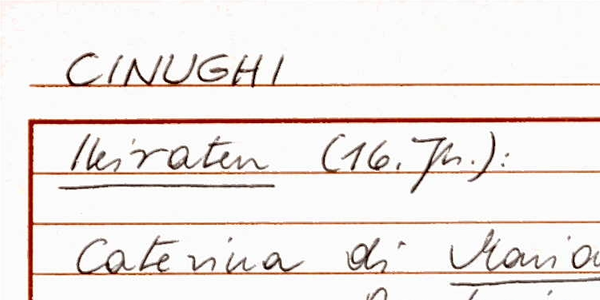 CINUGHI
Heiraten (16. Jh.):
Caterina di